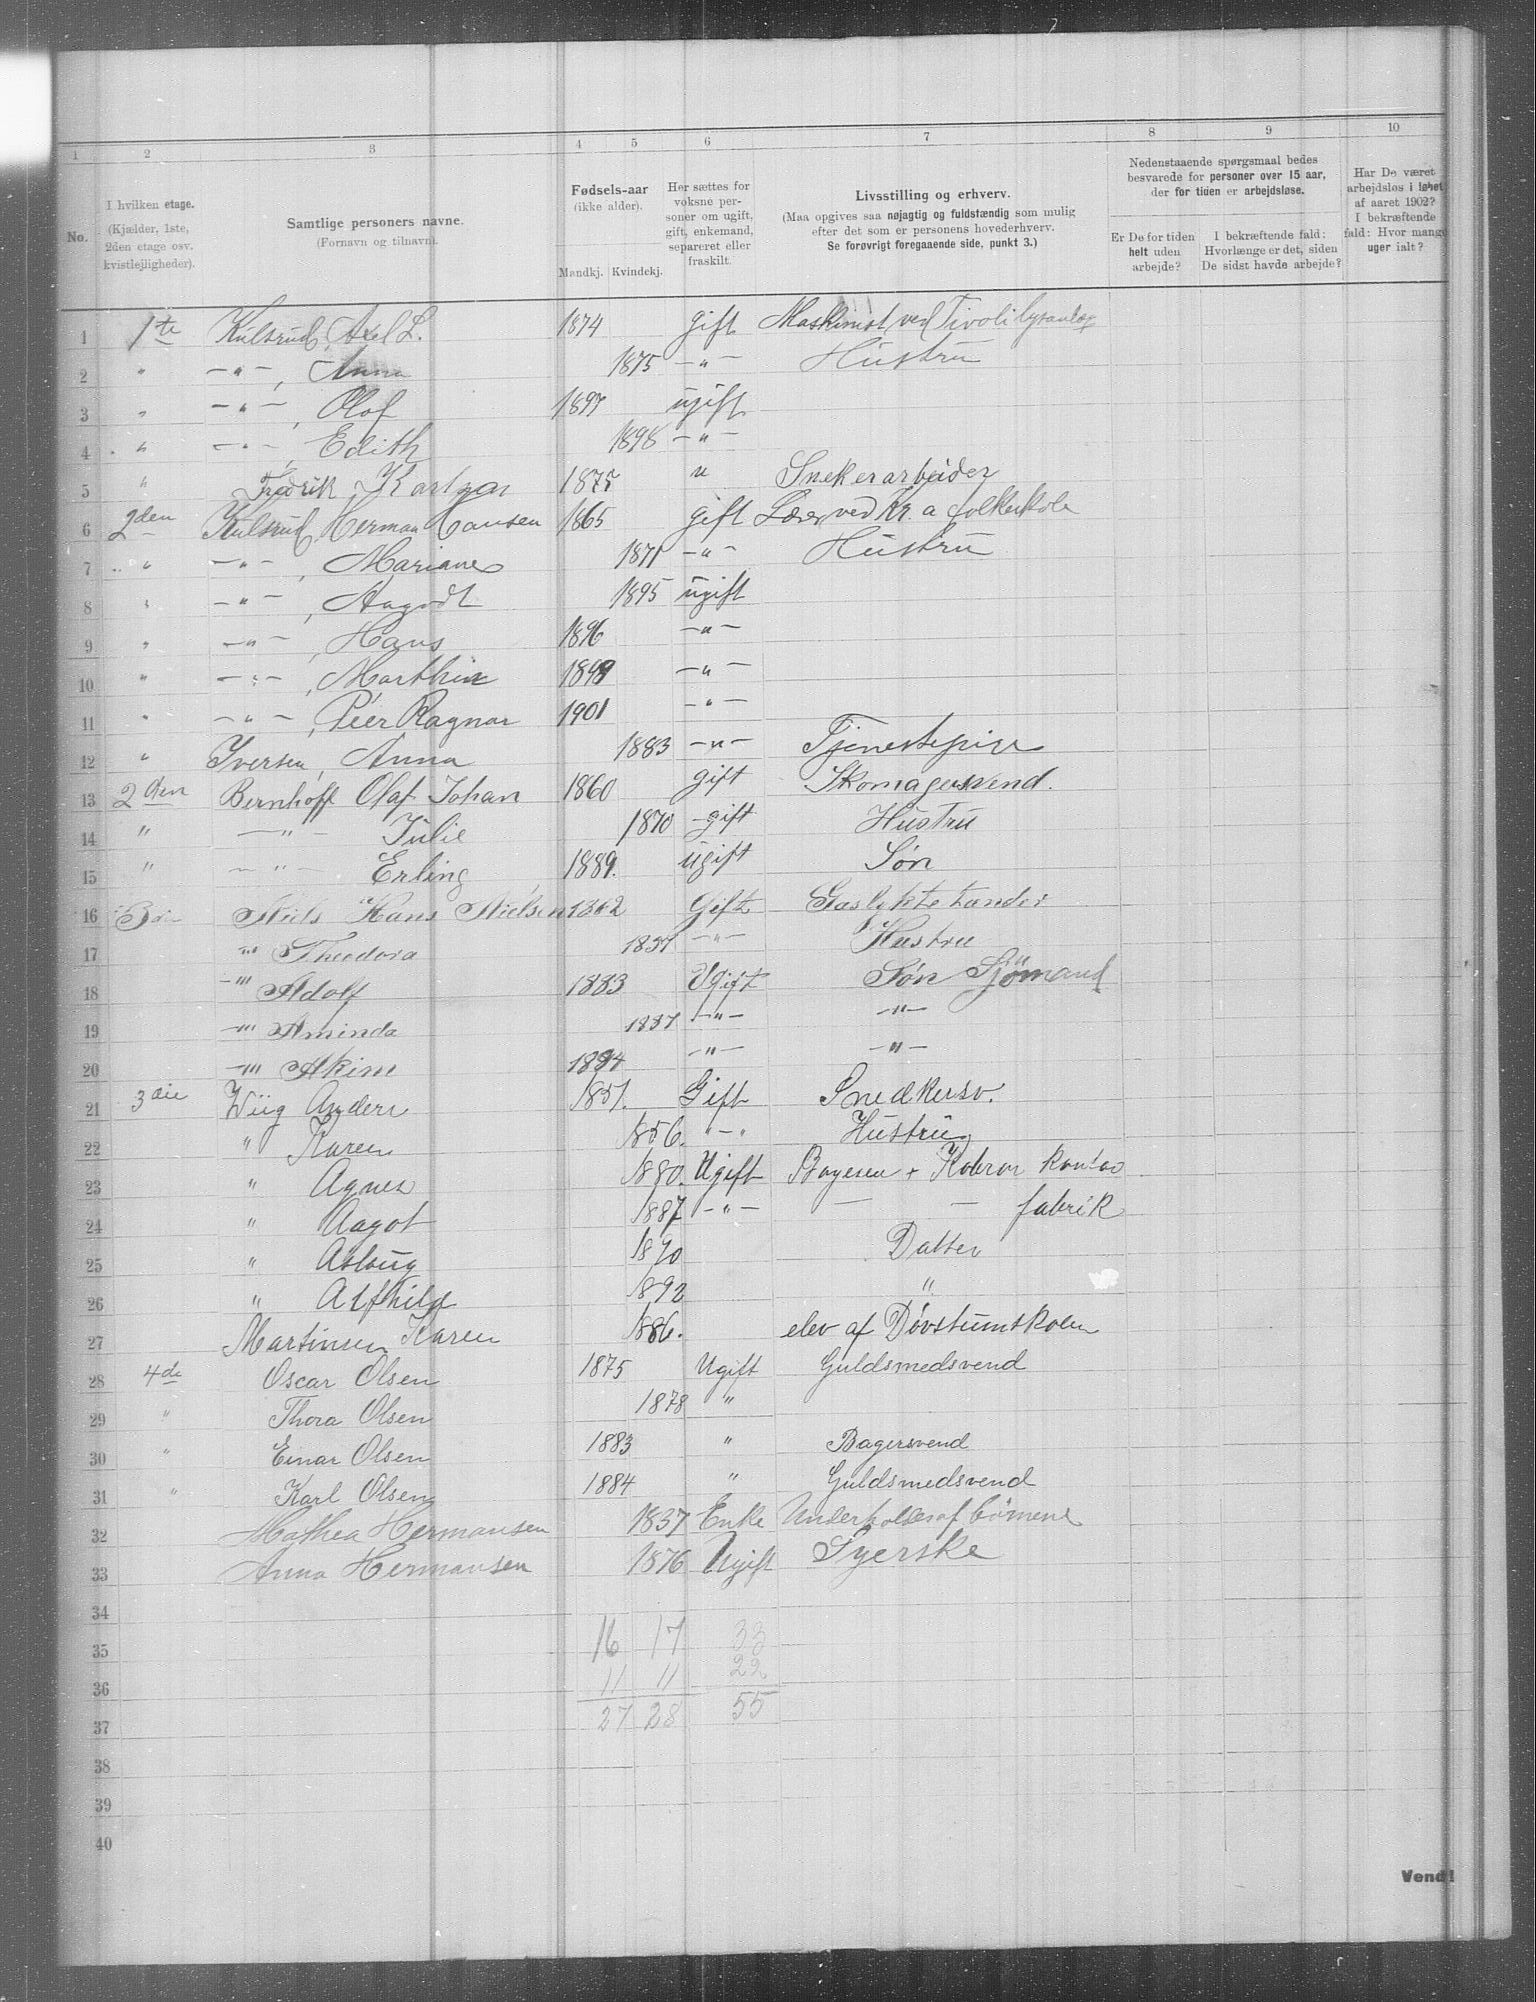 1 2 3 4 5 6 7 8 9 10
No.
I hvilken etage.
(Kjælder, 1ste,
2den etage osv.
kvistlejligheder).
Samtlige personers navne.
(Fornavn og tilnavn).
Fødsels-aar
(ikke alder).
Mandkj. Kvindekj.
Her sættes for
voksne per-
soner om ugift,
gift, enkemand,
separeret eller
fraskilt.
Livsstilling og erhverv.
(Maa opgives saa nøjagtig og fuldstændig som mulig
efter det som er personens hovederhverv.
Se forøvrigt foregaaende side, punkt 3.)
Nedenstaaende spørgsmaal bedes
besvarede for personer over 15 aar,
der for tiden er arbejdsløse.
Er De for tiden
helt uden
arbejde?
I bekræftende fald:
Hvorlænge er det, siden
De sidst havde arbejde?
Har De været
arbejdsløs i løbet
af aaret 1902?
I bekræftende
fald: Hvor mange
uger ialt?
1 1te Kulsrud, Axel L. 1874 gift Maskinist ved Tivoli lysanlæg
2 " —"—, Anna 1875 —"— Hustru
3 " —"—, Olaf 1897 ugift
4 " —"—, Edith 1898 —"—
5 " Fredrik Karlsen 1875 " Snekerarbeider
6 2den Kulsrud, Herman Hansen 1865 gift Lærer ved Kr.a folkeskole
7 " —"—, Mariane 1871 —"— Hustru
8 " —"—, Aagodt 1895 ugift
9 " —"—, Hans 1896 —"—
10 " —"—, Marthin 1899 —"—
11 " —"—, Peer Ragnar 1901 —"—
12 " Iversen, Anna 1883 —"— Tjenestepige
13 2den Bernhoff Olaf Johan 1860 gift Skomagersvend.
14 " —"— Julie 1870 gift Hustru
15 " —"— Erling 1889. ugift Søn
16 3die Niels Hans Nielsen 1862 Gift Gaslygtetænder
17 —"— Theodora 1857 —"— Hustru
18 —"— Adolf 1883 Ugift Søn Sjömand
19 —"— Aminda 1887 —"— —"—
20 —"— Akim 1894 —"— —"—
21 3die Wiig Anders 1851. Gift Snedkersv.
22 " Karen 1856. "—" Hustru
23 " Agnes 1880. Ugift Boyesen + Kobror kontor
24 " Aagot 1887 —"— — — fabrik
25 " Aslaug 1890 Datter
26 " Alfhild 1892 "
27 Martinsen Karen 1886. elev af Døvstumskolen
28 4de Oscar Olsen 1875 Ugift Guldsmedsvend
29 " Thora Olsen 1878 "
30 " Einar Olsen 1883 " Bagersvend
31 " Karl Olsen 1884 " Guldsmedsvend
32 Mathea Hermansen 1837 Enke Underholdes af börnene
33 Anna Hermansen 1876 Ugift Syerske
34
35 16 17 33
36 11 11 22
37 27 28 55
38
39
40
Vend!